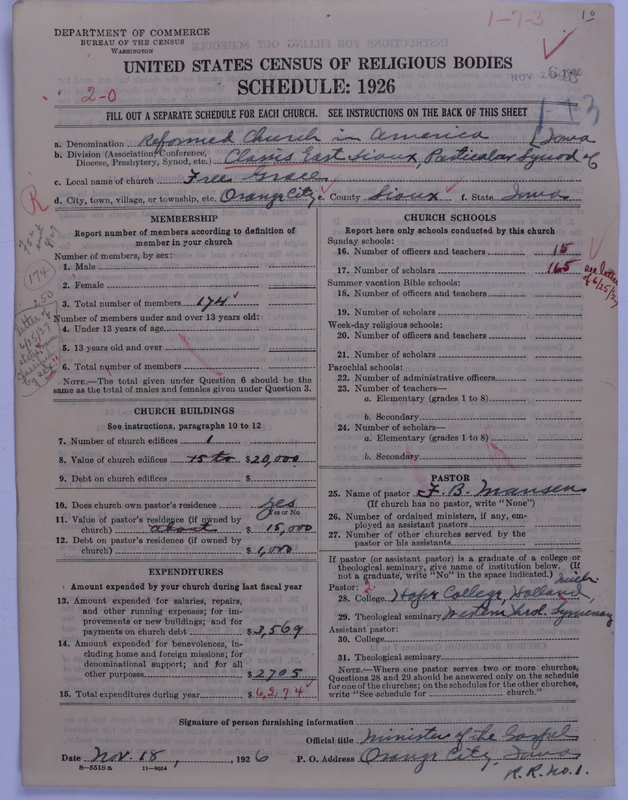 1-7-3
10
DEPARTMENT OF COMMERCE
BUREAU OF THE CENSUS
WASHINGTON
UNITED STATES CENSUS OF RELIGIOUS BODIES
SCHEDULE: 1926
NOV 2
2-0
1-13
FILL OUT A SEPARATE SCHEDULE FOR EACH CHURCH. SEE INSTRUCTIONS ON THE BACK OF THIS SHEET
a. Denomination Reformed Church in America (Iowa
b. Division (Association, Conference, Diocese, Presbytery, Synod, etc.) Classis East Sioux, Particular Synod of
c. Local name of church Free Grace
d. City, town, village, or township, etc. Orange City e. County Sioux f. State Iowa
R
MEMBERSHIP
Report number of members according to definition of
member in your church
Number of members, by sex:
1. Male
2. Female
3. Total number of members 174
Number of members under and over 13 years old:
4. Under 13 years of age
5. 13 years old and over
6. Total number of members
NOTE.—The total given under Question 6 should be the
same as the total of males and females given under Question 3.
174
250
letter of
6/25/27
CHURCH BUILDINGS
See instructions, paragraphs 10 to 12
7. Number of church edifices 1
8. Value of church edifices 15 to $20,000
9. Debt on church edifices $
10. Does church own pastor's residence yes
Yes or No
11. Value of pastor's residence (if owned by
church) about $ 15,000
12. Debt on pastor's residence (if owned by
church) $ 1,000
EXPENDITURES
Amount expended by your church during last fiscal year
13. Amount expended for salaries, repairs,
and other running expenses; for im-
provements or new buildings; and for
payments on church debt $3,569
14. Amount expended for benevolences, in-
cluding home and foreign missions; for
denominational support; and for all
other purposes $2705
15. Total expenditures during year $6,274
CHURCH SCHOOLS
Report here only schools conducted by this church
Sunday schools:
16. Number of officers and teachers 15
17. Number of scholars 165
see letter
of 6/25/27
Summer vacation Bible schools:
18. Number of officers and teachers
19. Number of scholars
Week-day religious schools:
20. Number of officers and teachers
21. Number of scholars
Parochial schools:
22. Number of administrative officers
23. Number of teachers—
a. Elementary (grades 1 to 8)
b. Secondary
24. Number of scholars—
a. Elementary (grades 1 to 8)
b. Secondary
PASTOR
25. Name of pastor F. B. Mansen
(If church has no pastor, write "None")
26. Number of ordained ministers, if any, em-
ployed as assistant pastors
27. Number of other churches served by the
pastor or his assistants
If pastor (or assistant pastor) is a graduate of a college or
theological seminary, give name of institution below. (If
not a graduate, write "No" in the space indicated.)
Pastor: 2
28. College Hope College, Holland, Mich.
29. Theological seminary Western Theol. Seminary
Assistant pastor:
30. College
31. Theological seminary
NOTE.—Where one pastor serves two or more churches,
Questions 28 and 29 should be answered only on the schedule
for one of the churches; on the schedules for the other churches,
write "See schedule for church."
Signature of person furnishing information
Official title Minister of the Gospel
Date Nov. 18, 1926 P. O. Address Orange City, Iowa
R.R. no. 1.
8—5518a 11—9054